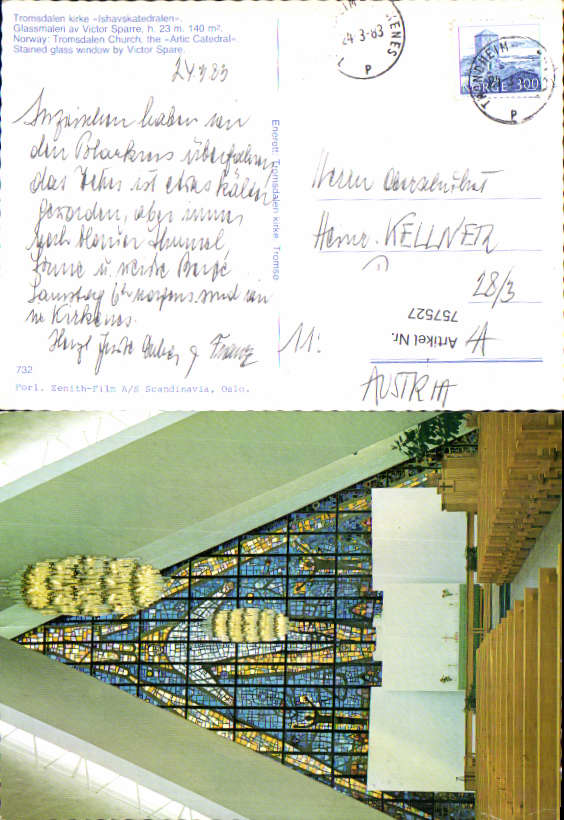 Tromsdalen kirke «Ishavskatedralen».
Glassmaleri av Victor Sparre, h. 23 m. 140 m².
Norway: Tromsdalen Church, the «Artic Catedral»
Stained glass window by Victor Spare.
24 3 83
Inzwischen haben wir
den Polarkreis überfahren
das Wetter ist etwas kälter
geworden, aber immer
noch blauer Himmel,
Sonne u. weiße Berge
Samstag 6h morgens sind wir
in Kirkenes.
Herzl Franz
732
Forl. Zenith-Film A/S Scandinavia, Oslo.
Enerett: Tromsdalen kirke, Tromsø
24 3-83
KIRKENES
P
NORGE 300
TRONDHEIM
P
Herrn
KELLNER
28/3
Artikel Nr.
757527
A
11.
AUSTRIA